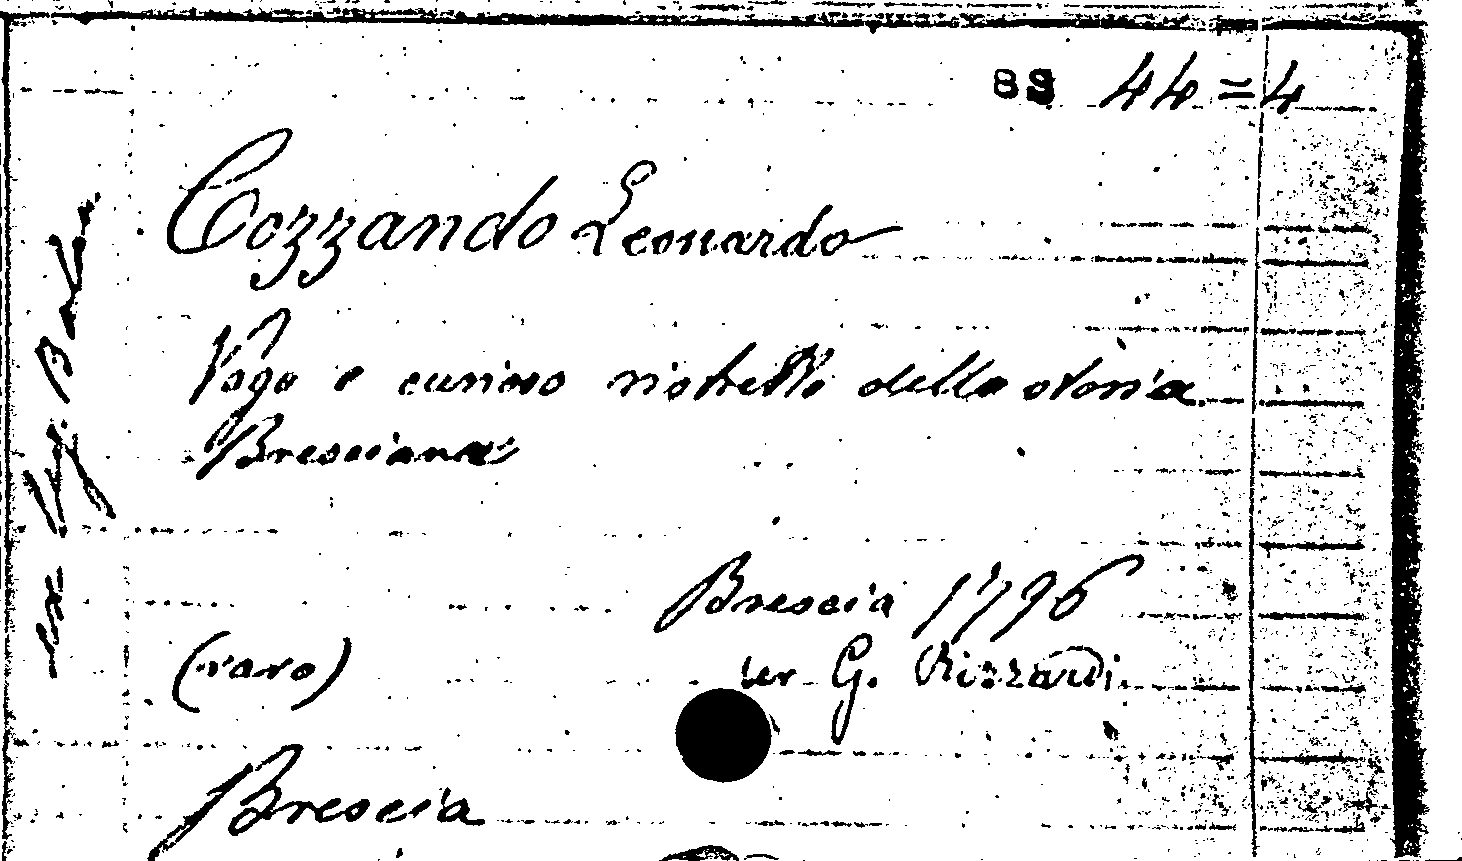 89 44=4
Cozzando Leonardo
Vago e curioso ristretto della storia
Bresciana
Brescia 1796
(raro)
per G. Rizzardi.
Brescia
ex leg.